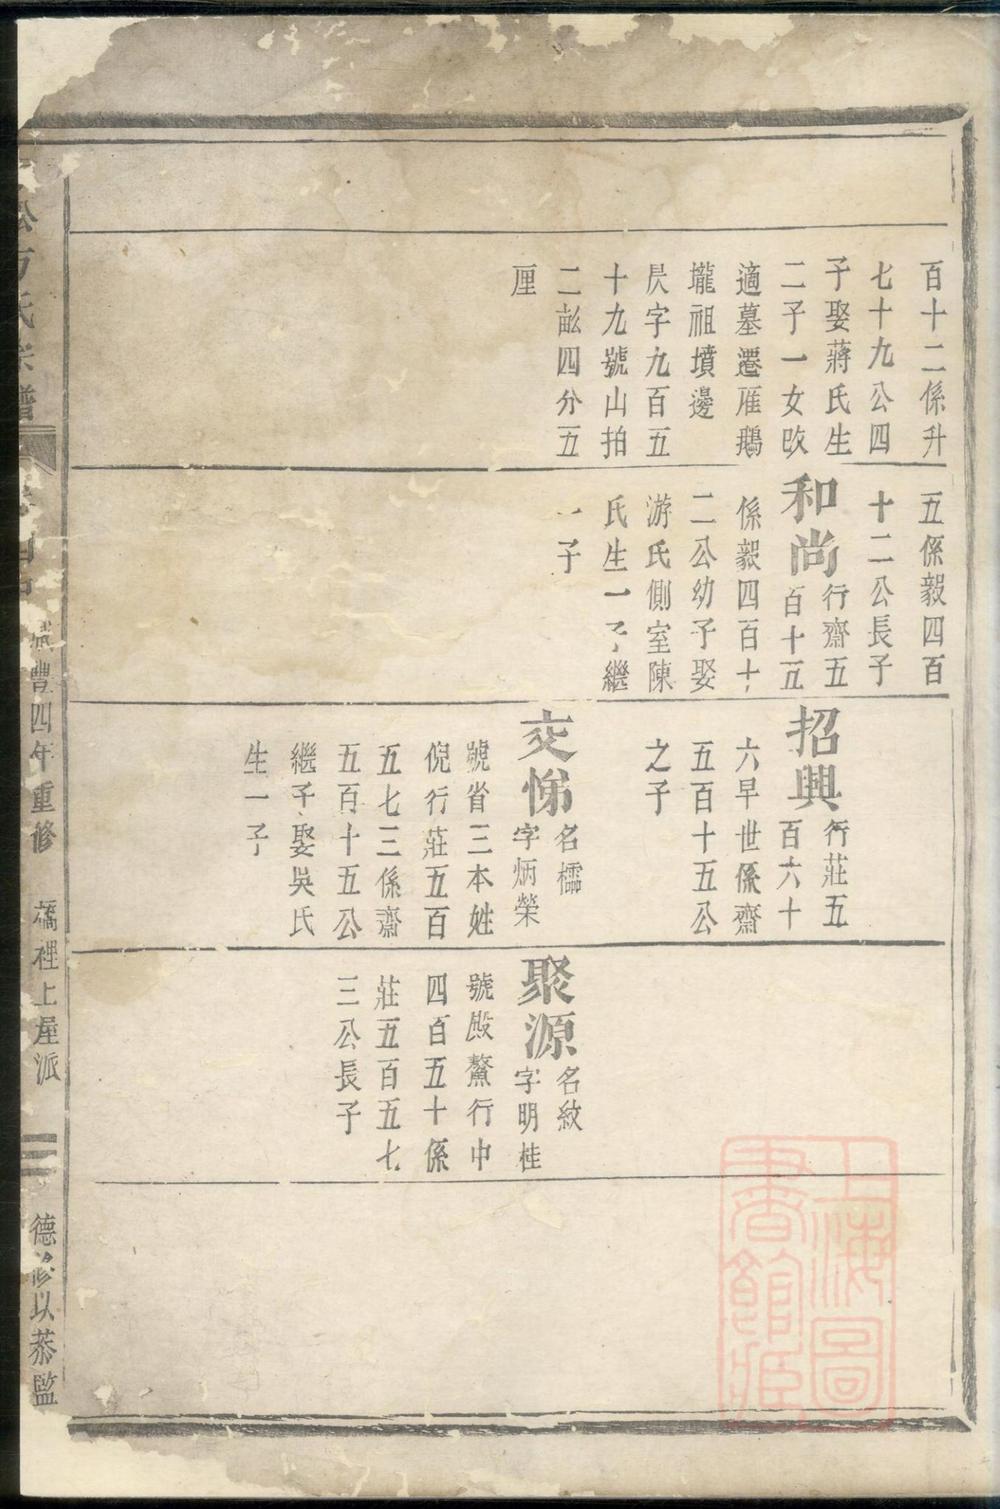 百十二係升
七十九公四
子娶蔣氏生
二子一女改
適墓遷雁鵝
壠祖墳邊
昃字九百五
十九號山拍
二畝四分五
厘
五係毅四百
十二公長子
和尚行齋五
百十五
係毅四百十
二公幼子娶
游氏側室陳
氏生一子繼
一子
招興行莊五
百六十
六早世係齋
五百十五公
之子
交悌名櫺
字炳榮
號省三本姓
倪行莊五百
五七三係齋
五百十五公
繼子娶吳氏
生一子
聚源名紋
字明桂
號殿鰲行中
四百五十係
莊五百五七
三公長子
方氏宗譜
咸豐四年重修
橋裡上屋派
德修以恭監
上海圖書館藏